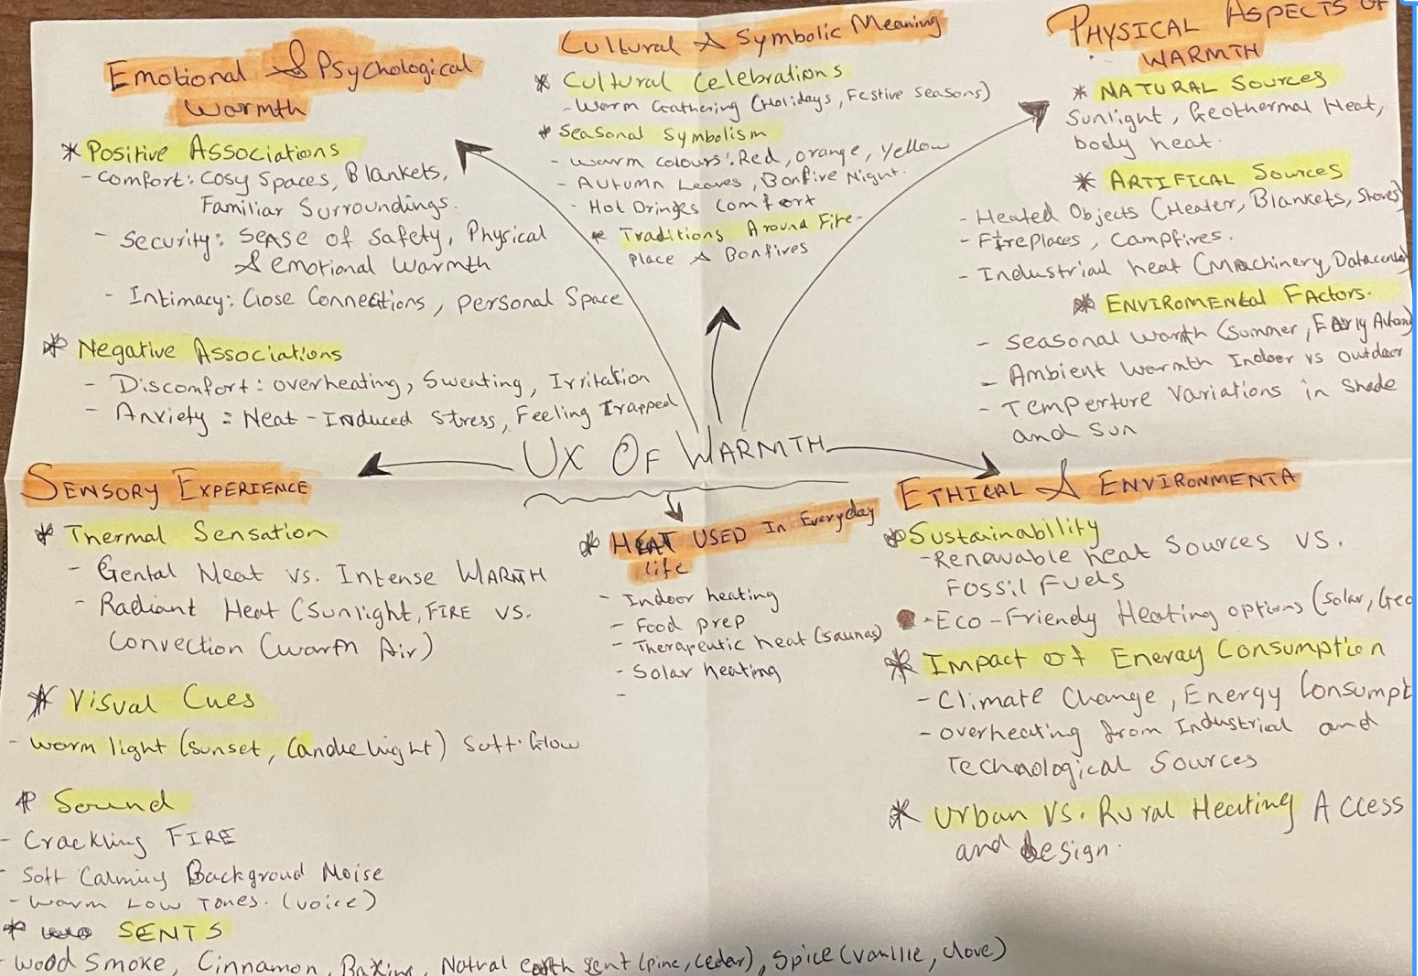 Emotional & Psychological
Warmth
* Positive Associations
- Comfort: Cosy Spaces, Blankets,
Familiar Surroundings.
- Security: Sense of Safety, Physical
& emotional Warmth
- Intimacy: Close Connections, personal Space
* Negative Associations
- Discomfort: overheating, Sweating, Irritation
- Anxiety: Heat-Induced Stress, Feeling Trapped
Cultural & Symbolic Meaning
* Cultural Celebrations
- Warm Gathering (Holidays, Festive seasons)
* Seasonal Symbolism
- Warm colours: Red, orange, Yellow
- Autumn Leaves, Bonfire Night.
- Hot Drinks Comfort
* Traditions Around Fire-
Place & Bonfires
PHYSICAL ASPECTS OF
WARMTH
* NATURAL Sources
Sunlight, Geothermal Heat,
body heat.
* ARTIFICAL Sources
- Heated Objects (Heater, Blankets, Stoves)
- Fireplaces, Campfires.
- Industrial heat (Machinery, Datacenter)
* ENVIROMENtal Factors.
- Seasonal Warth (Summer, Early Autum)
- Ambient Warmth Indoor vs outdoor
- Temperture Variations in Shade
and Sun
UX OF WARMTH
SENSORY EXPERIENCE
* Thermal Sensation
- Gental Heat vs. Intense WARMTH
- Radiant Heat (Sunlight, FIRE vs.
Convection (warm Air)
* Visual Cues
- warm light (sunset, Candle light) Soft Glow
* Sound
- Crackling FIRE
- Soft Calming Backgroud Noise
- Warm Low Tones. (voice)
* SENTS
- Wood Smoke, Cinnamon, Baking, Natral earth sent (pine, Cedar), Spice (vanillie, clove)
* HEAT USED In Everyday
life
- Indoor heating
- Food prep
- Therapeutic heat (Saunas)
- Solar heating
-
ETHICAL & ENVIRONMENTA
* Sustainability
- Renewable heat Sources vs.
Fossil Fuels
- Eco-Friendly Heating options (Solar, Geo
* Impact of Energy Consumption
- Climate Change, Energy Consumpt
- overheating from Industrial and
Technological Sources
* Urban Vs. Rural Heating Access
and design.